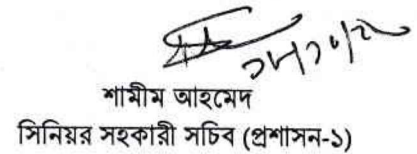 শামীম আহমেদ
সিনিয়র সহকারী সচিব (প্রশাসন-১)